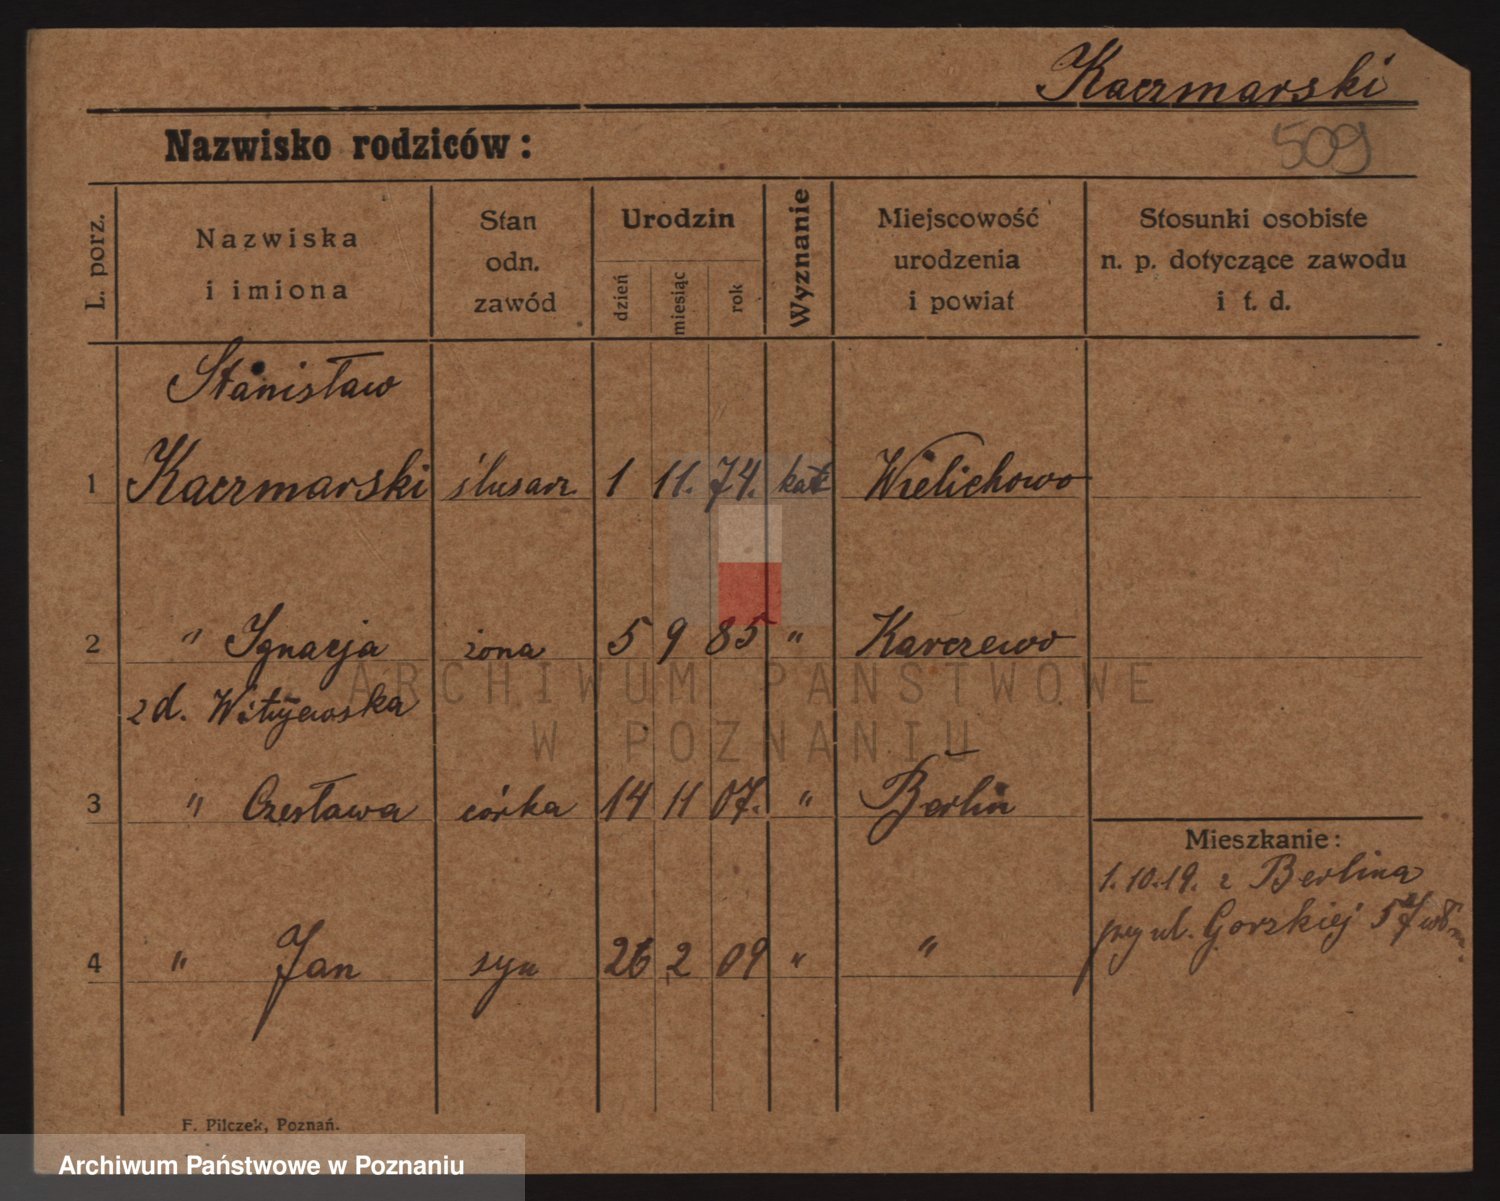 Kaczmarski
Nazwisko rodziców:
509
L. porz.
Nazwiska
i imiona
Stan
odn.
zawód
Urodzin
dzień
miesiąc
rok
Wyznanie
Miejscowość
urodzenia
i powiat
Stosunki osobiste
n. p. dotyczące zawodu
i t. d.
Stanisław
1 Kaczmarski ślusarz. 1 11. 74. kat Wielichowo
2 " Ignacja żona 5 9 85 " Karczewo
zd.
3 " Czesława córka 14 11 07. " Berlin
Mieszkanie:
1.10.19. z Berlina
przy ul. Gorzkiej 57
4 " Jan syn 26 2 09 " "
F. Pilczek, Poznań.
ARCHIWUM PAŃSTWOWE
W POZNANIU
Archiwum Państwowe w Poznaniu